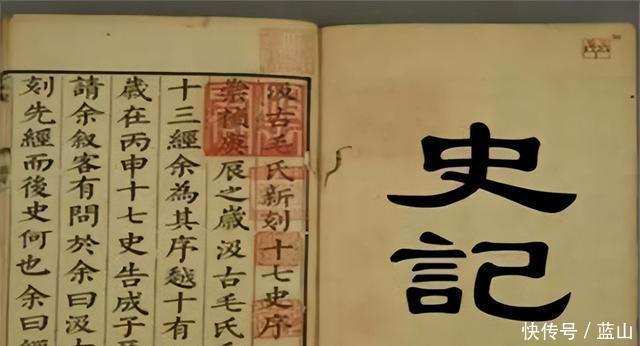 史記
汲古毛氏新刻十七史序
崇禎庚辰之歲汲古毛氏
十三經余為其序越十有
歲在丙申十七史告成子
請余叙客有問於余曰汲
刻先經而後史何也余曰經
快传号/蓝山